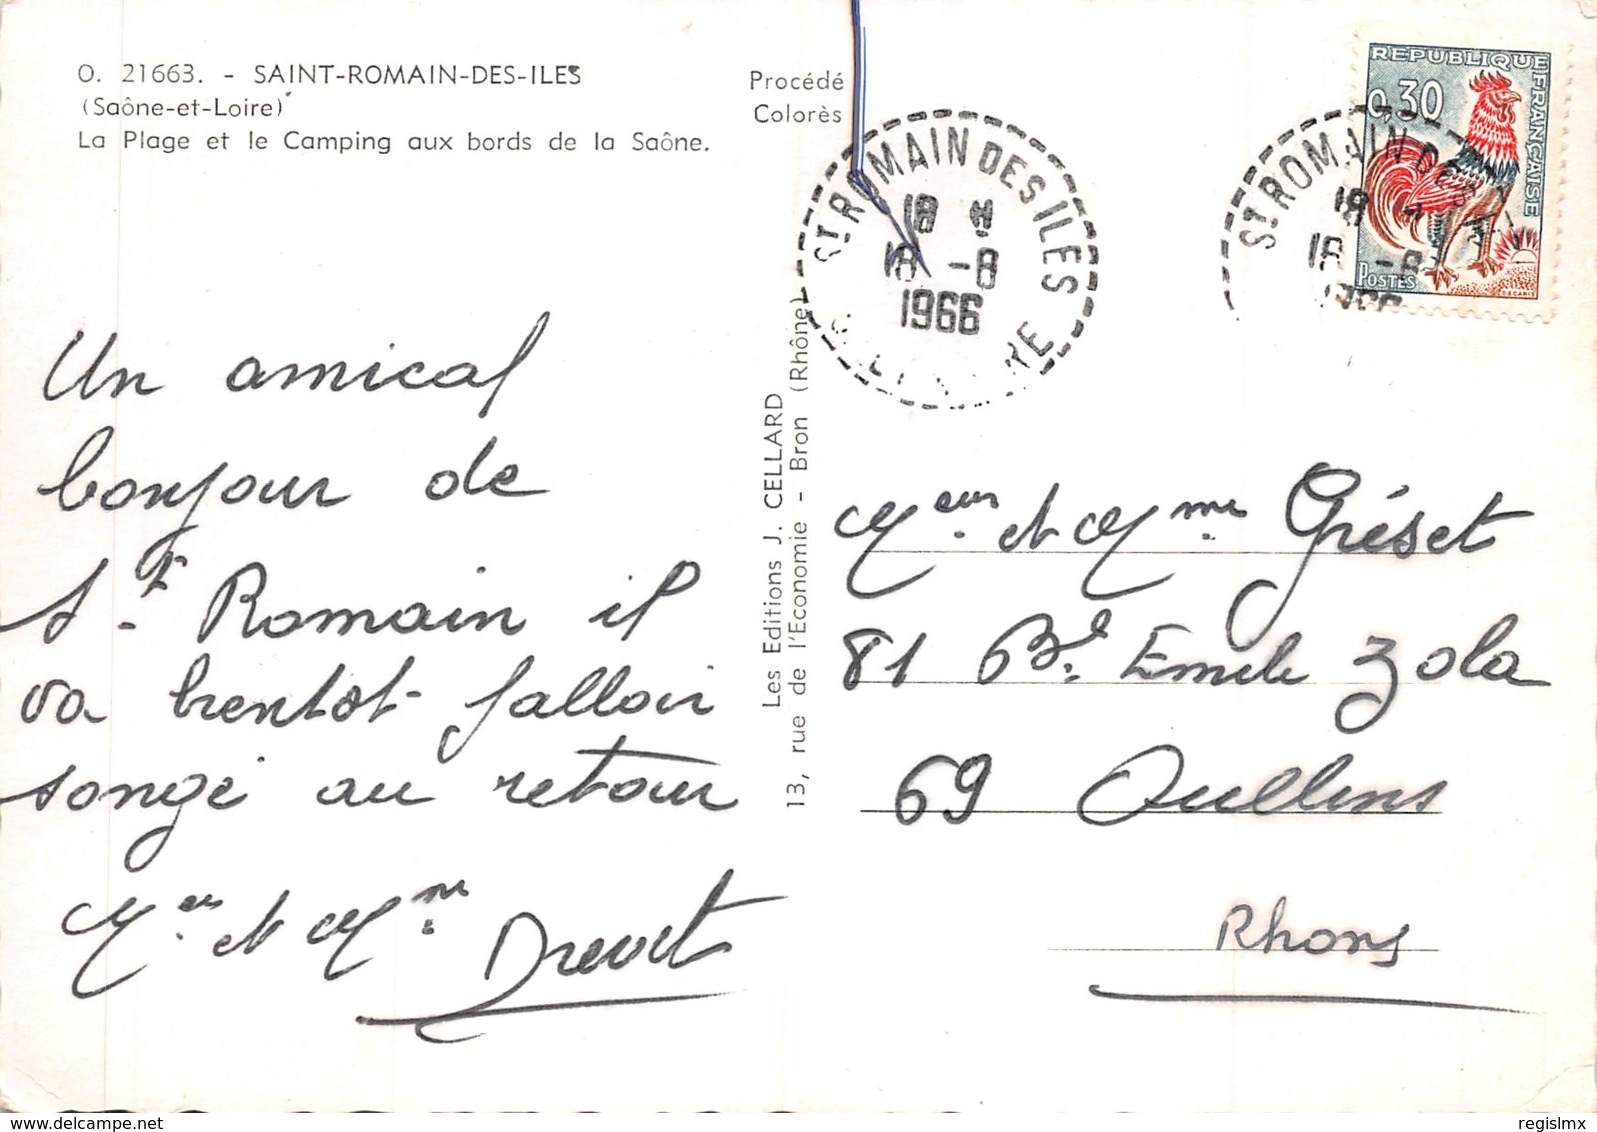 O. 21663. - SAINT-ROMAIN-DES-ILES
(Saône-et-Loire)
La Plage et le Camping aux bords de la Saône.
Procédé
Colorès
ST ROMAIN DES ILES
18 H
18 -8
1966
REPUBLIQUE FRANÇAISE
0,30
POSTES
DECARIS
ST ROMAIN DES
18
18 -8
1966
Un amical
bonjour de
St. Romain il
va bientot falloir
songé au retour
Meur et Mme
Les Editions J. CELLARD
13, rue de l'Economie - Bron (Rhône)
Meur. et Mme Gréset
81 Bd. Emile Zola
69 Oullins
Rhone
delcampe.net
regislmx